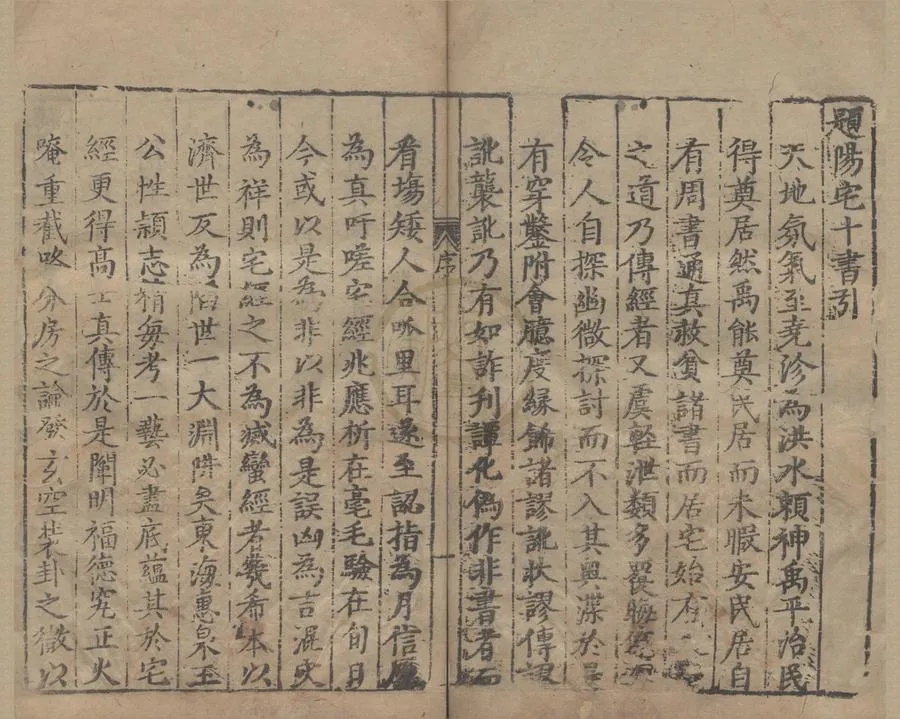 題陽宅十書引
天地氛氣至堯沴為洪水賴神禹平治民
得奠居然禹能奠民居而未暇安民居自
有周書通真救貧諸書而居宅始有
之道乃傳經者又虞輕泄類多罢晦
令人自探幽微探討而不入其奧渫於是
有穿鑿附會臆度緣飾諸謬訛狀謬傳謬
訛襲訛乃有如詐刋譚化偽作非書者石
序
一
看塲矮人合呱里耳遂至認指為月信
為真吁嗟宅經兆應析在毫毛驗在旬日
今或以是為非以非為是誤凶為吉混灾
為祥則宅經之不為滅蠻經者幾希本以
濟世反為陷世一大淵阱矣東海惠泉王
公性頴志精每考一藝必盡底蘊其於宅
經更得高士真傳於是闡明福德究正火
唵重截咯分房之論發玄空裝卦之微以